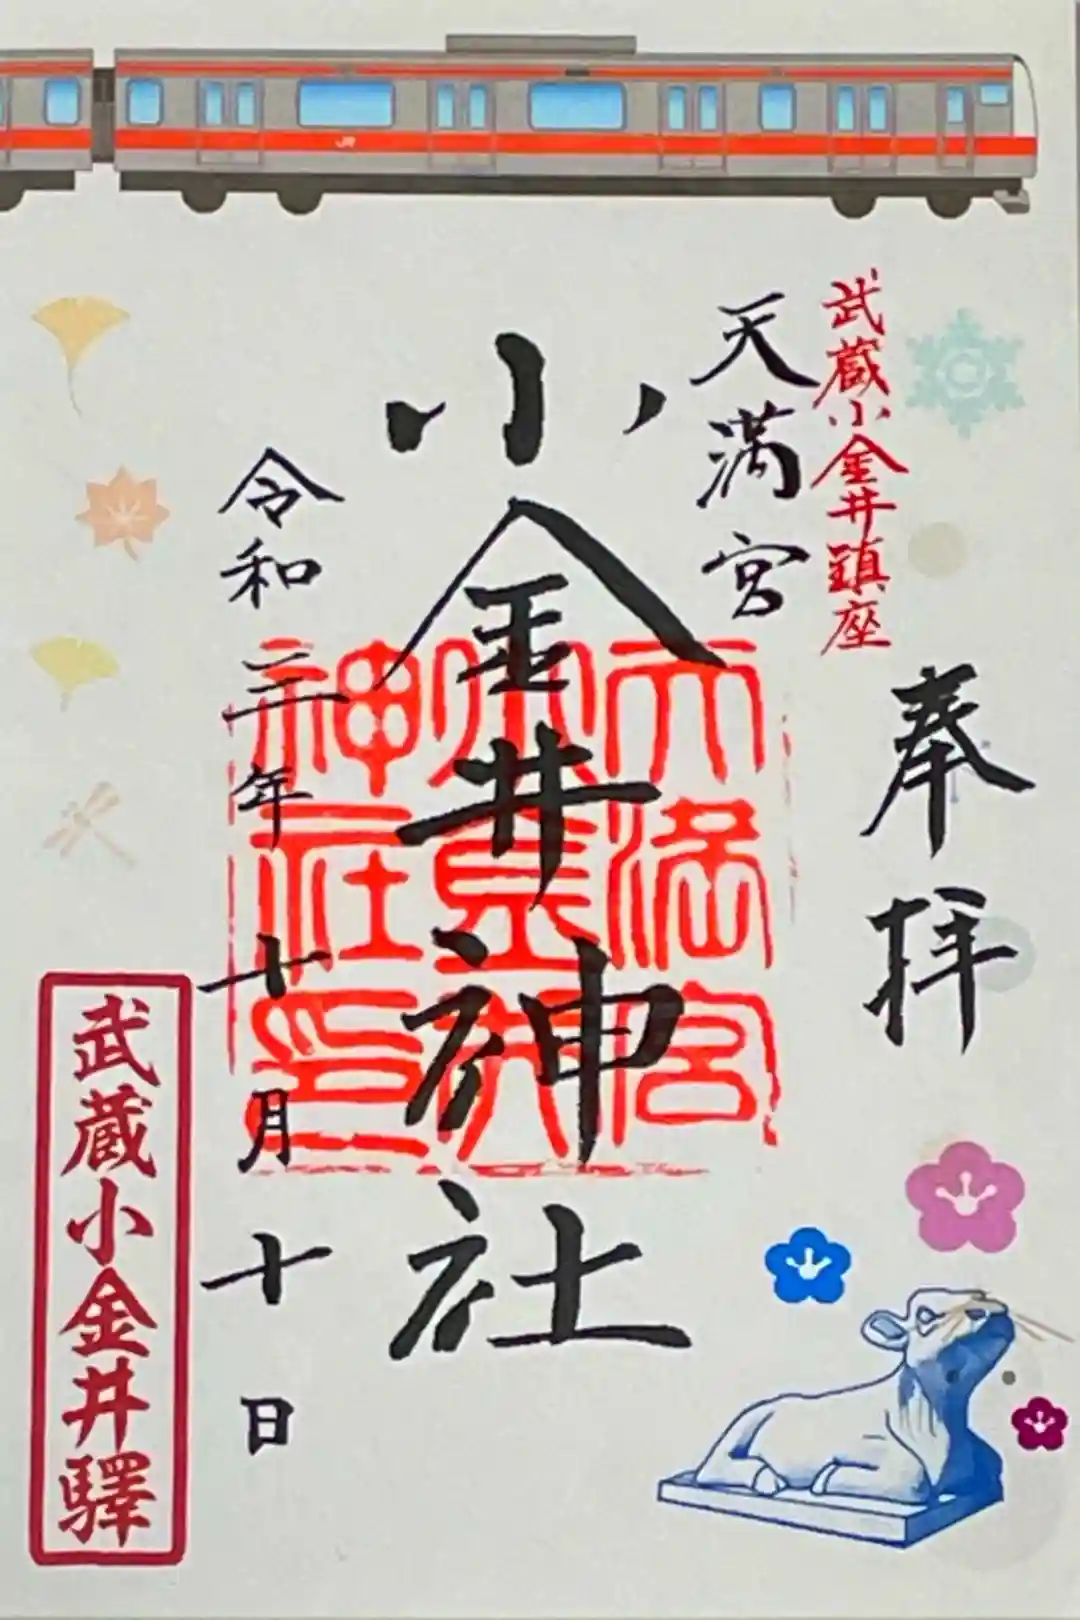 JR
武蔵小金井鎮座
奉拝
天満宮
小金井神社
天満宮
小金井
神社印
令和三年十月十日
武蔵小金井驛